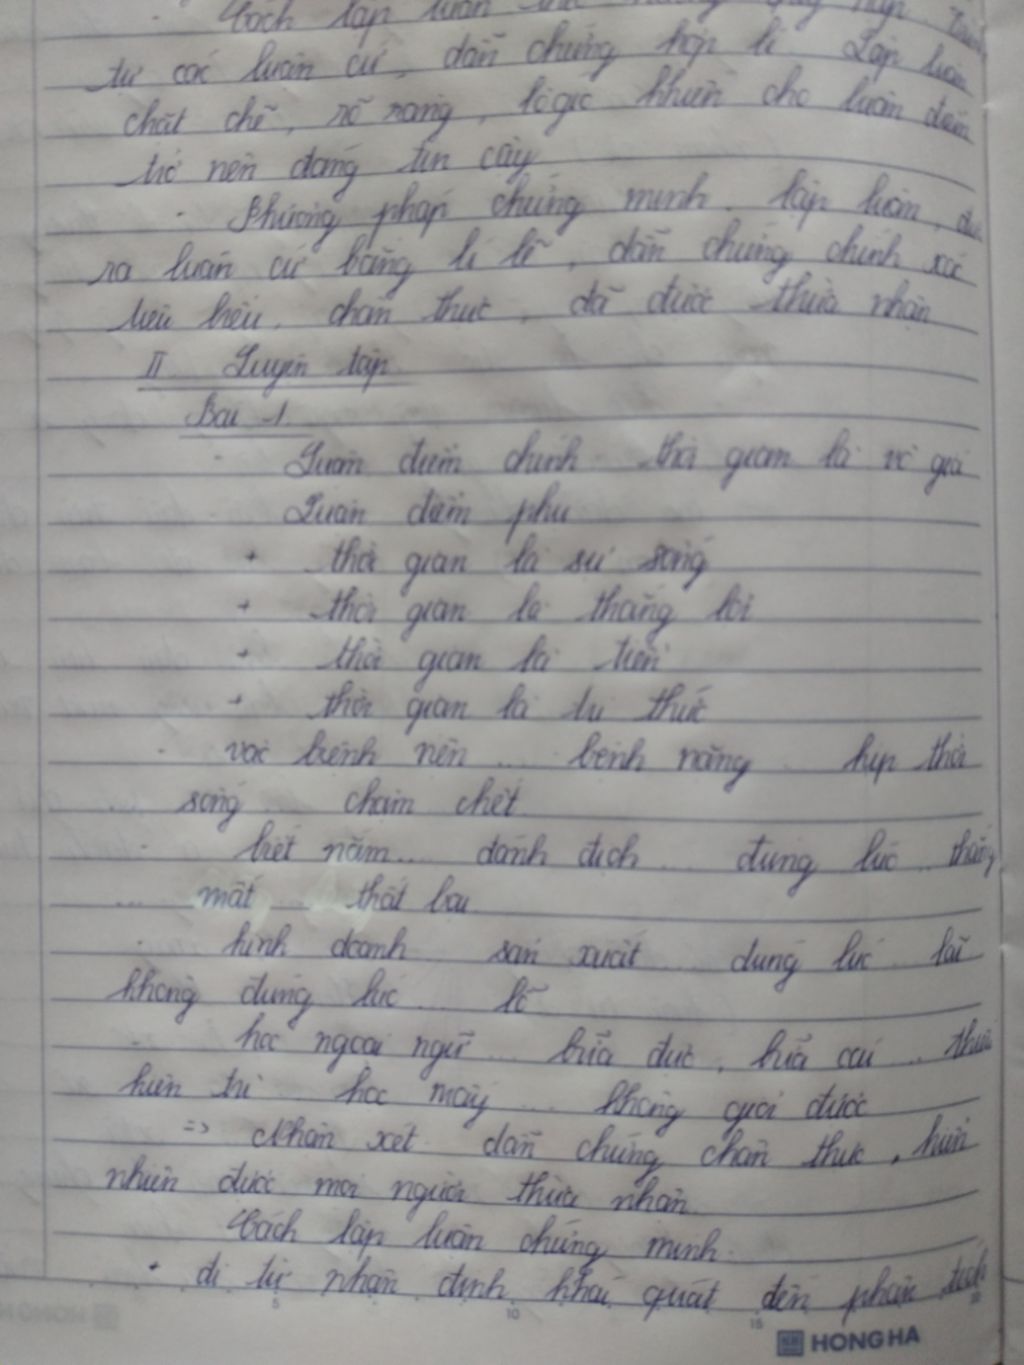 Cách lập luận
từ các luận cứ, dẫn chứng hợp lí. Lập luận
chặt chẽ, rõ ràng, lôgic khiến cho luận điểm
trở nên đáng tin cậy
- Phương pháp chứng minh. lập luận, đưa
ra luận cứ bằng lí lẽ, dẫn chứng chính xác
tiêu biểu, chân thực, đã được thừa nhận
II Luyện tập
Bài 1.
- Luận điểm chính: thời gian là vô giá
Luận điểm phụ
+ thời gian là sự sống
+ thời gian là thắng lợi
+ thời gian là tiền
+ thời gian là tri thức
- bệnh nên ... bệnh nặng ... kịp thời
... sống ... chậm chết
- biết nắm ... đánh địch ... đúng lúc ... thắng
... mất ... thất bại
- kinh doanh ... sản xuất ... đúng lúc lãi
không đúng lúc ... lỗ
- học ngoại ngữ ... bữa đực, bữa cái ...
kiên trì ... học mấy ... không giỏi được
=> Nhận xét: dẫn chứng chân thực, hiển
nhiên được mọi người thừa nhận
Cách lập luận chứng minh.
+ đi từ nhận định khái quát đến phân tích
5 10 15 20
HONG HA